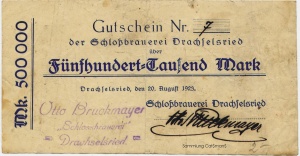 Gutschein Nr. 7
der Schloßbrauerei Drachselsried
über
Fünfhundert-Tausend Mark
Drachselsried, den 20. August 1923.
Schloßbrauerei Drachselsried
Mk. 500 000
Otto Bruckmayer
"Schlossbrauerei"
Drachselsried
Otto Bruckmayer
Sammlung